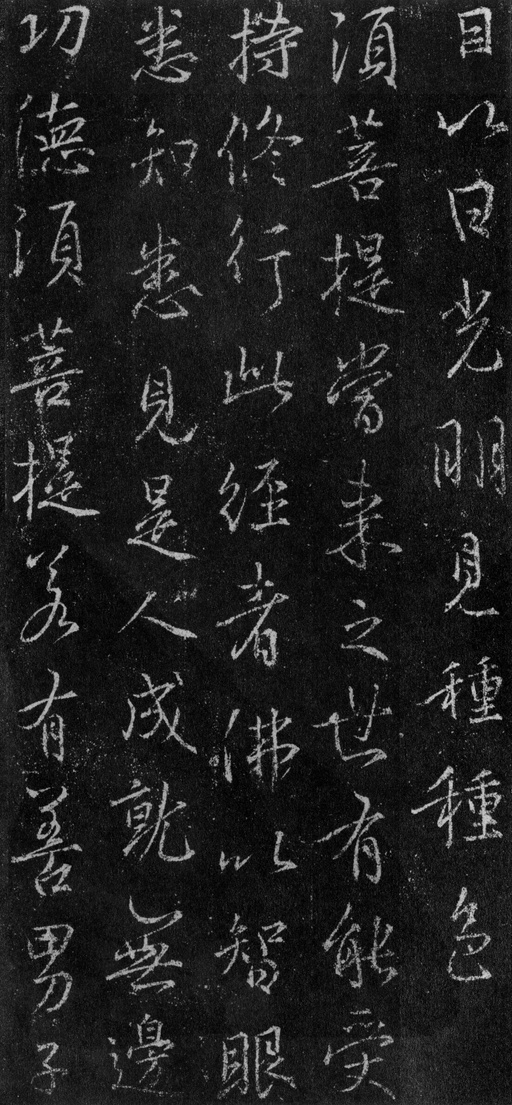 目以日光明見種種色
須菩提當来之世有能受
持修行此經者佛以智眼
悉知悉見是人成就無邊
功德須菩提若有善男子